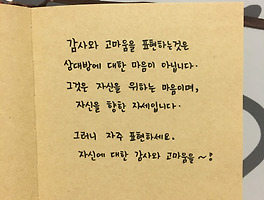 감사와 고마움을 표현하는것은
상대방에 대한 마음이 아닙니다.
그것은 자신을 위하는 마음이며,
자신을 향한 자세입니다.
그러니 자주 표현하세요.
자신에 대한 감사와 고마움을~!